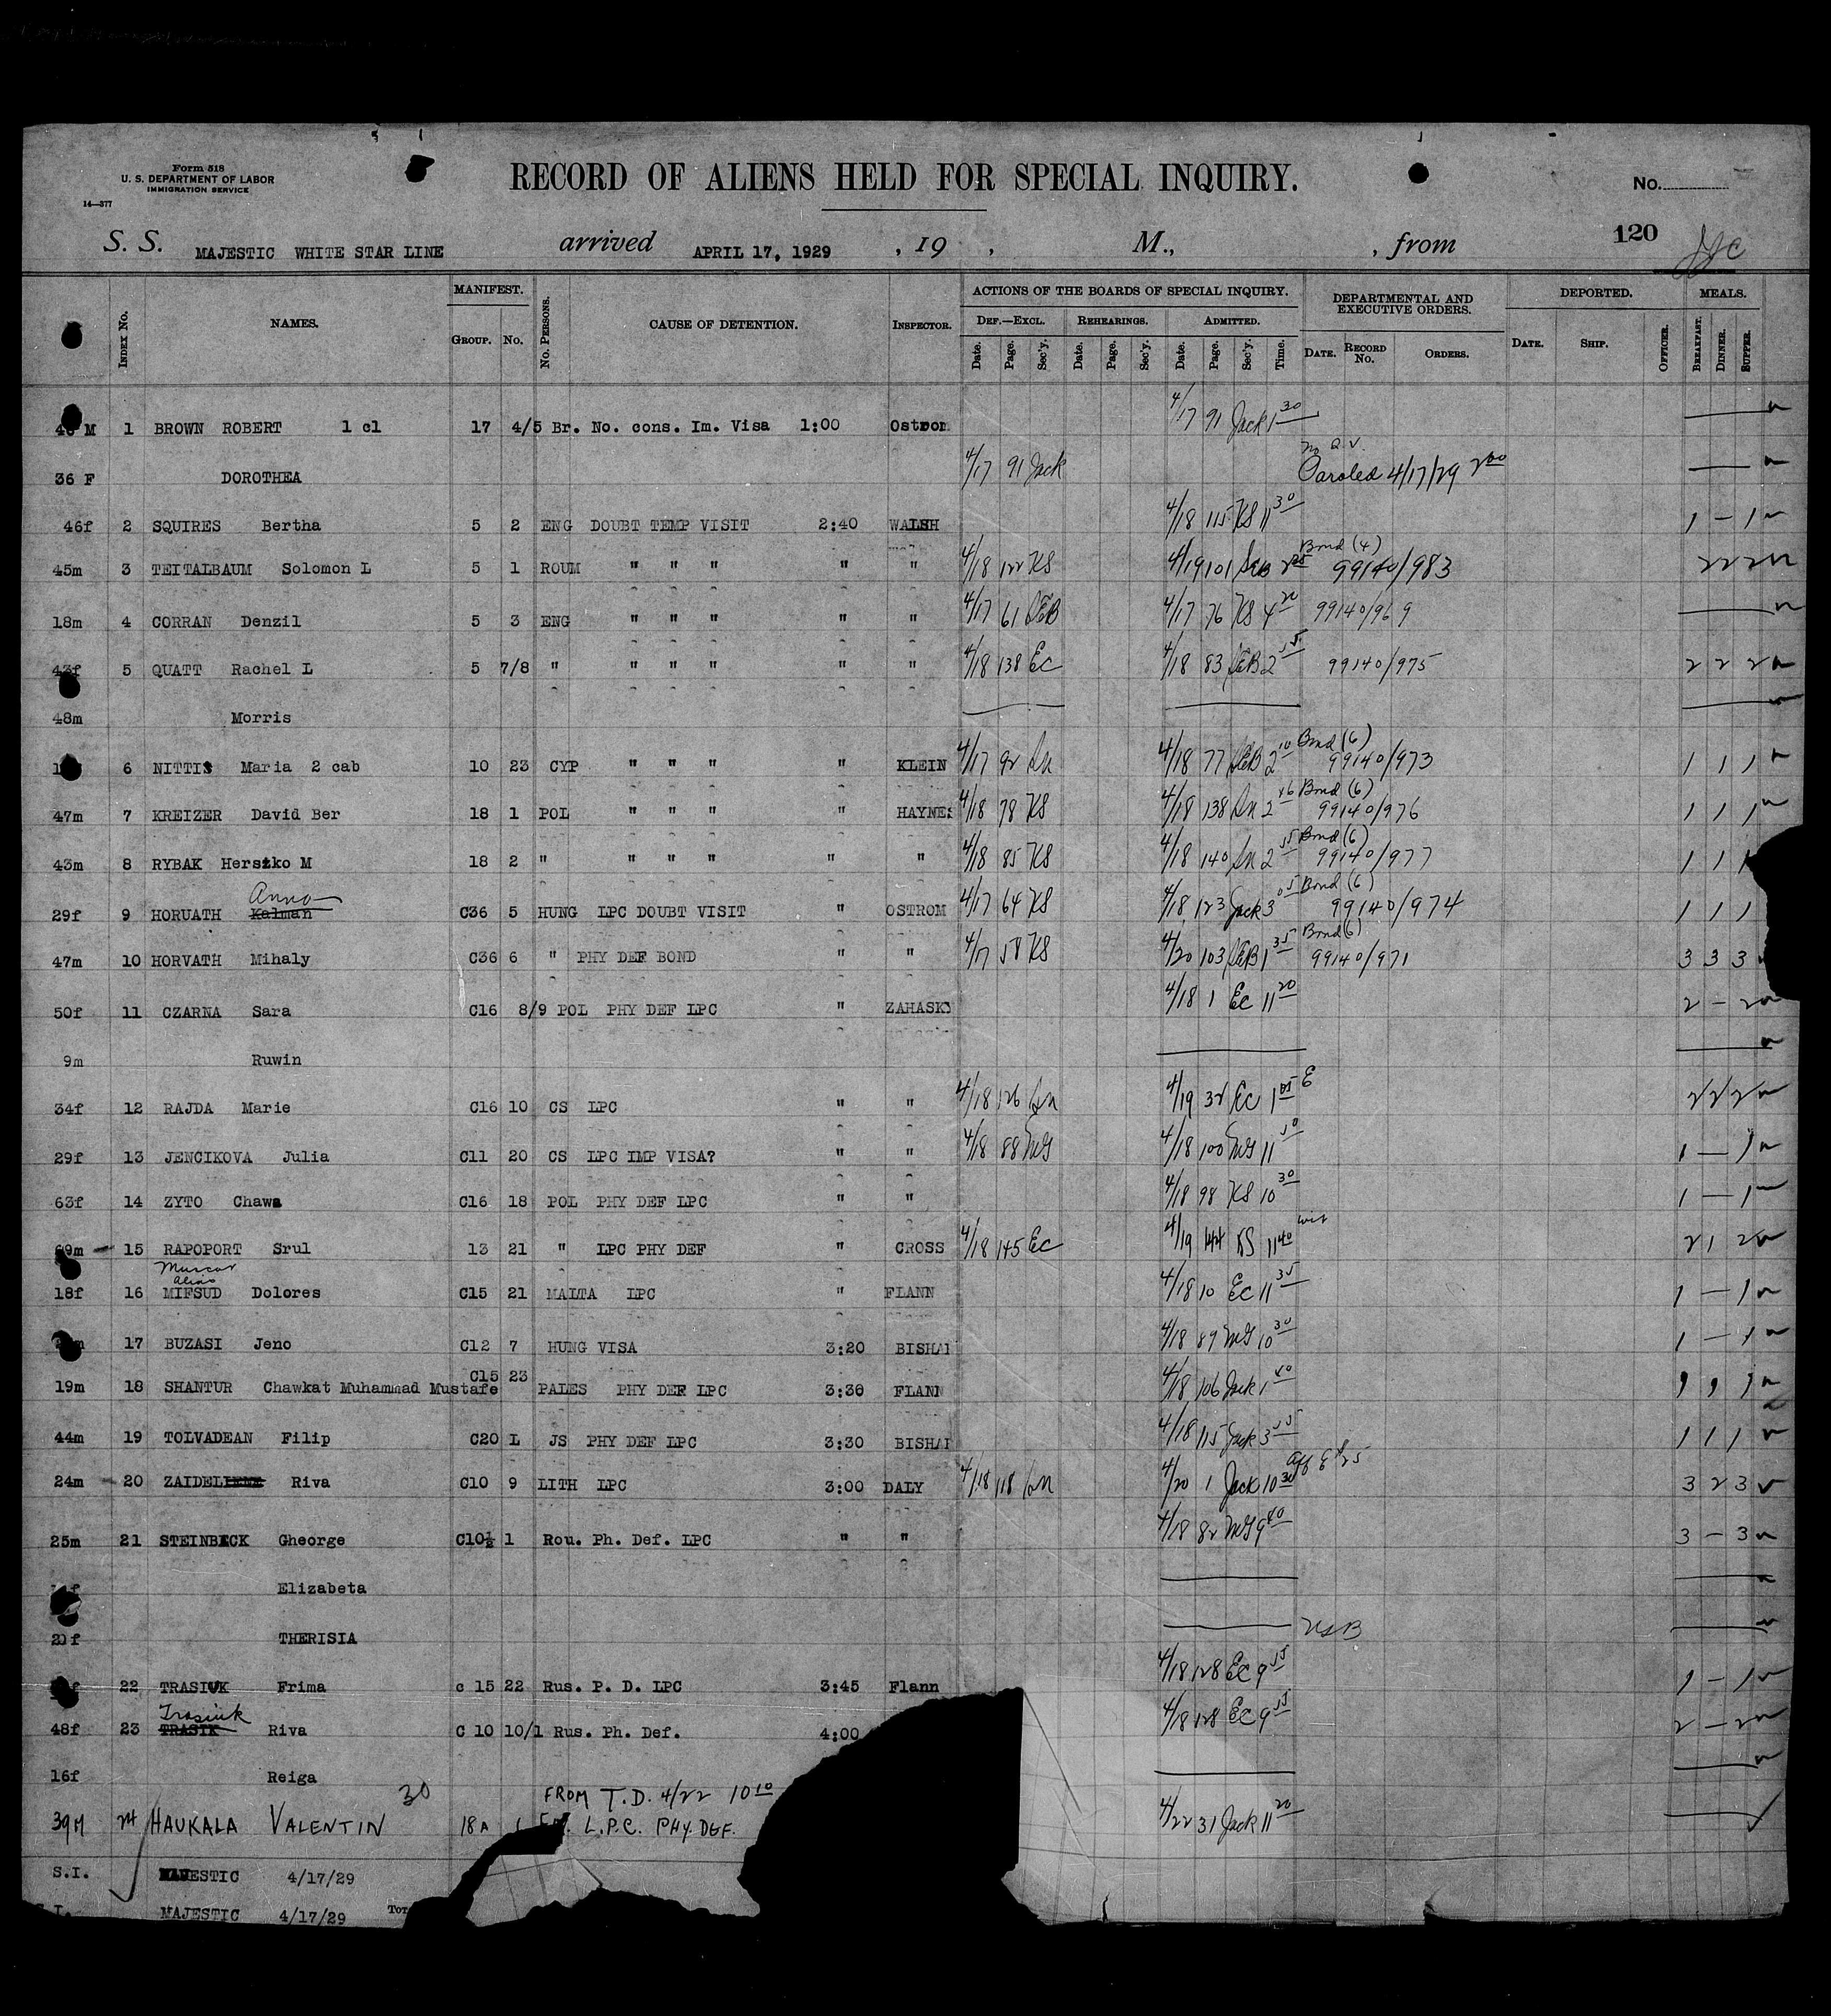 Form 518
U. S. DEPARTMENT OF LABOR
IMMIGRATION SERVICE
14—377
RECORD OF ALIENS HELD FOR SPECIAL INQUIRY.
No.
120
S. S. MAJESTIC WHITE STAR LINE arrived APRIL 17, 1929 , 19 , M., , from
INDEX NO. NAMES. MANIFEST. GROUP. NO. NO. PERSONS. CAUSE OF DETENTION. INSPECTOR. ACTIONS OF THE BOARDS OF SPECIAL INQUIRY. DEF.—EXCL. Date. Page. Sec'y. REHEARINGS. Date. Page. Sec'y. ADMITTED. Date. Page. Sec'y. Time. DEPARTMENTAL AND EXECUTIVE ORDERS. DATE. RECORD NO. ORDERS. DEPORTED. DATE. SHIP. OFFICER. MEALS. BREAKFAST. DINNER. SUPPER.
M 1 BROWN ROBERT 1 cl 17 4/5 Br. No. cons. Im. Visa 1:00 Ostrom 4/17 91 Jack 1 30
36 F DOROTHEA 4/17 91 Jack Paroled 4/17/29 2 00
46f 2 SQUIRES Bertha 5 2 ENG DOUBT TEMP VISIT 2:40 WALSH 4/18 115 KS 11 30 1 – 1
45m 3 TEITALBAUM Solomon L 5 1 ROUM " " " " " 4/18 122 KS 4/19 101 Bond (4) 99140/983 2 2 2
18m 4 CORRAN Denzil 5 3 ENG " " " " " 4/17 61 SEB 4/17 76 KS 4 20 99140/969
43f 5 QUATT Rachel L 5 7/8 " " " " " " 4/18 138 EC 4/18 83 SEB 2 15 99140/975 2 2 2
48m Morris
6 NITTIS Maria 2 cab 10 23 CYP " " " " KLEIN 4/17 92 4/18 77 SEB 2 10 Bond (6) 99140/973 1 1 1
47m 7 KREIZER David Ber 18 1 POL " " " " HAYNES 4/18 78 KS 4/18 138 2 Bond (6) 99140/976 1 1 1
43m 8 RYBAK Herszko M 18 2 " " " " " " 4/18 85 KS 4/18 140 2 55 Bond (6) 99140/977 1 1 1
Anna
29f 9 HORUATH Kalman C36 5 HUNG LPC DOUBT VISIT " OSTROM 4/17 64 KS 4/18 123 Jack 3 05 Bond (6) 99140/974 1 1 1
47m 10 HORVATH Mihaly C36 6 " PHY DEF BOND " " 4/17 58 KS 4/20 103 SEB 1 35 Bond (6) 99140/971 3 3 3
50f 11 CZARNA Sara C16 8/9 POL PHY DEF LPC " ZAHASKY 4/18 1 EC 11 20 2 – 2
9m Ruwin
34f 12 RAJDA Marie C16 10 CS LPC " " 4/18 126 4/19 32 EC 1 E 2 2 2
29f 13 JENCIKOVA Julia C11 20 CS LPC IMP VISA? " " 4/18 88 MG 4/18 100 MG 11 50 1 – 1
63f 14 ZYTO Chawa C16 18 POL PHY DEF LPC " " 4/18 98 KS 10 30 1 – 1
69m 15 RAPOPORT Srul 13 21 " LPC PHY DEF " CROSS 4/18 145 EC 4/19 44 KS 11 40 2 1 2
alias
18f 16 MIFSUD Dolores C15 21 MALTA LPC " FLANN 4/18 10 EC 11 35 1 – 1
17 BUZASI Jeno C12 7 HUNG VISA 3:20 BISHAI 4/18 89 MG 10 30 1 – 1
19m 18 SHANTUR Chawkat Muhammad Mustafe C15 23 PALES PHY DEF LPC 3:30 FLANN 4/18 106 Jack 1 40 1 1 1
44m 19 TOLVADEAN Filip C20 L JS PHY DEF LPC 3:30 BISHAI 4/18 115 Jack 3 55 1 1 1
24m 20 ZAIDEL Riva C10 9 LITH LPC 3:00 DALY 4/18 118 4/20 1 Jack 10 30 3 2 3
25m 21 STEINBECK Gheorge C10½ 1 Rou. Ph. Def. LPC " " 4/18 82 MG 9 40 3 – 3
Elizabeta
f THERISIA
22 TRASIUK Frima c 15 22 Rus. P. D. LPC 3:45 Flann 4/18 128 EC 9 55 1 – 1
Trasiuk
48f 23 TRASIK Riva C 10 10/1 Rus. Ph. Def. 4:00 4/18 128 EC 9 55 2 – 2
16f Reiga
30 FROM T.D. 4/22 10 10
39M 24 HAUKALA VALENTIN 18A 1 L.P.C. PHY. DEF. 4/22 31 Jack 11 20
S.I. MAJESTIC 4/17/29
MAJESTIC 4/17/29